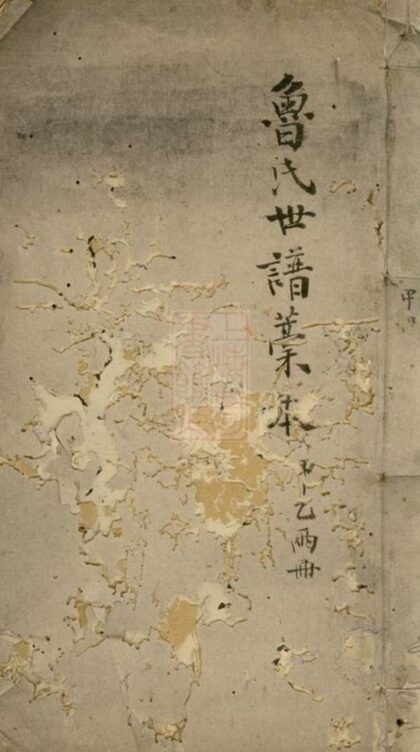 魯氏世譜藁本
乙兩冊
甲